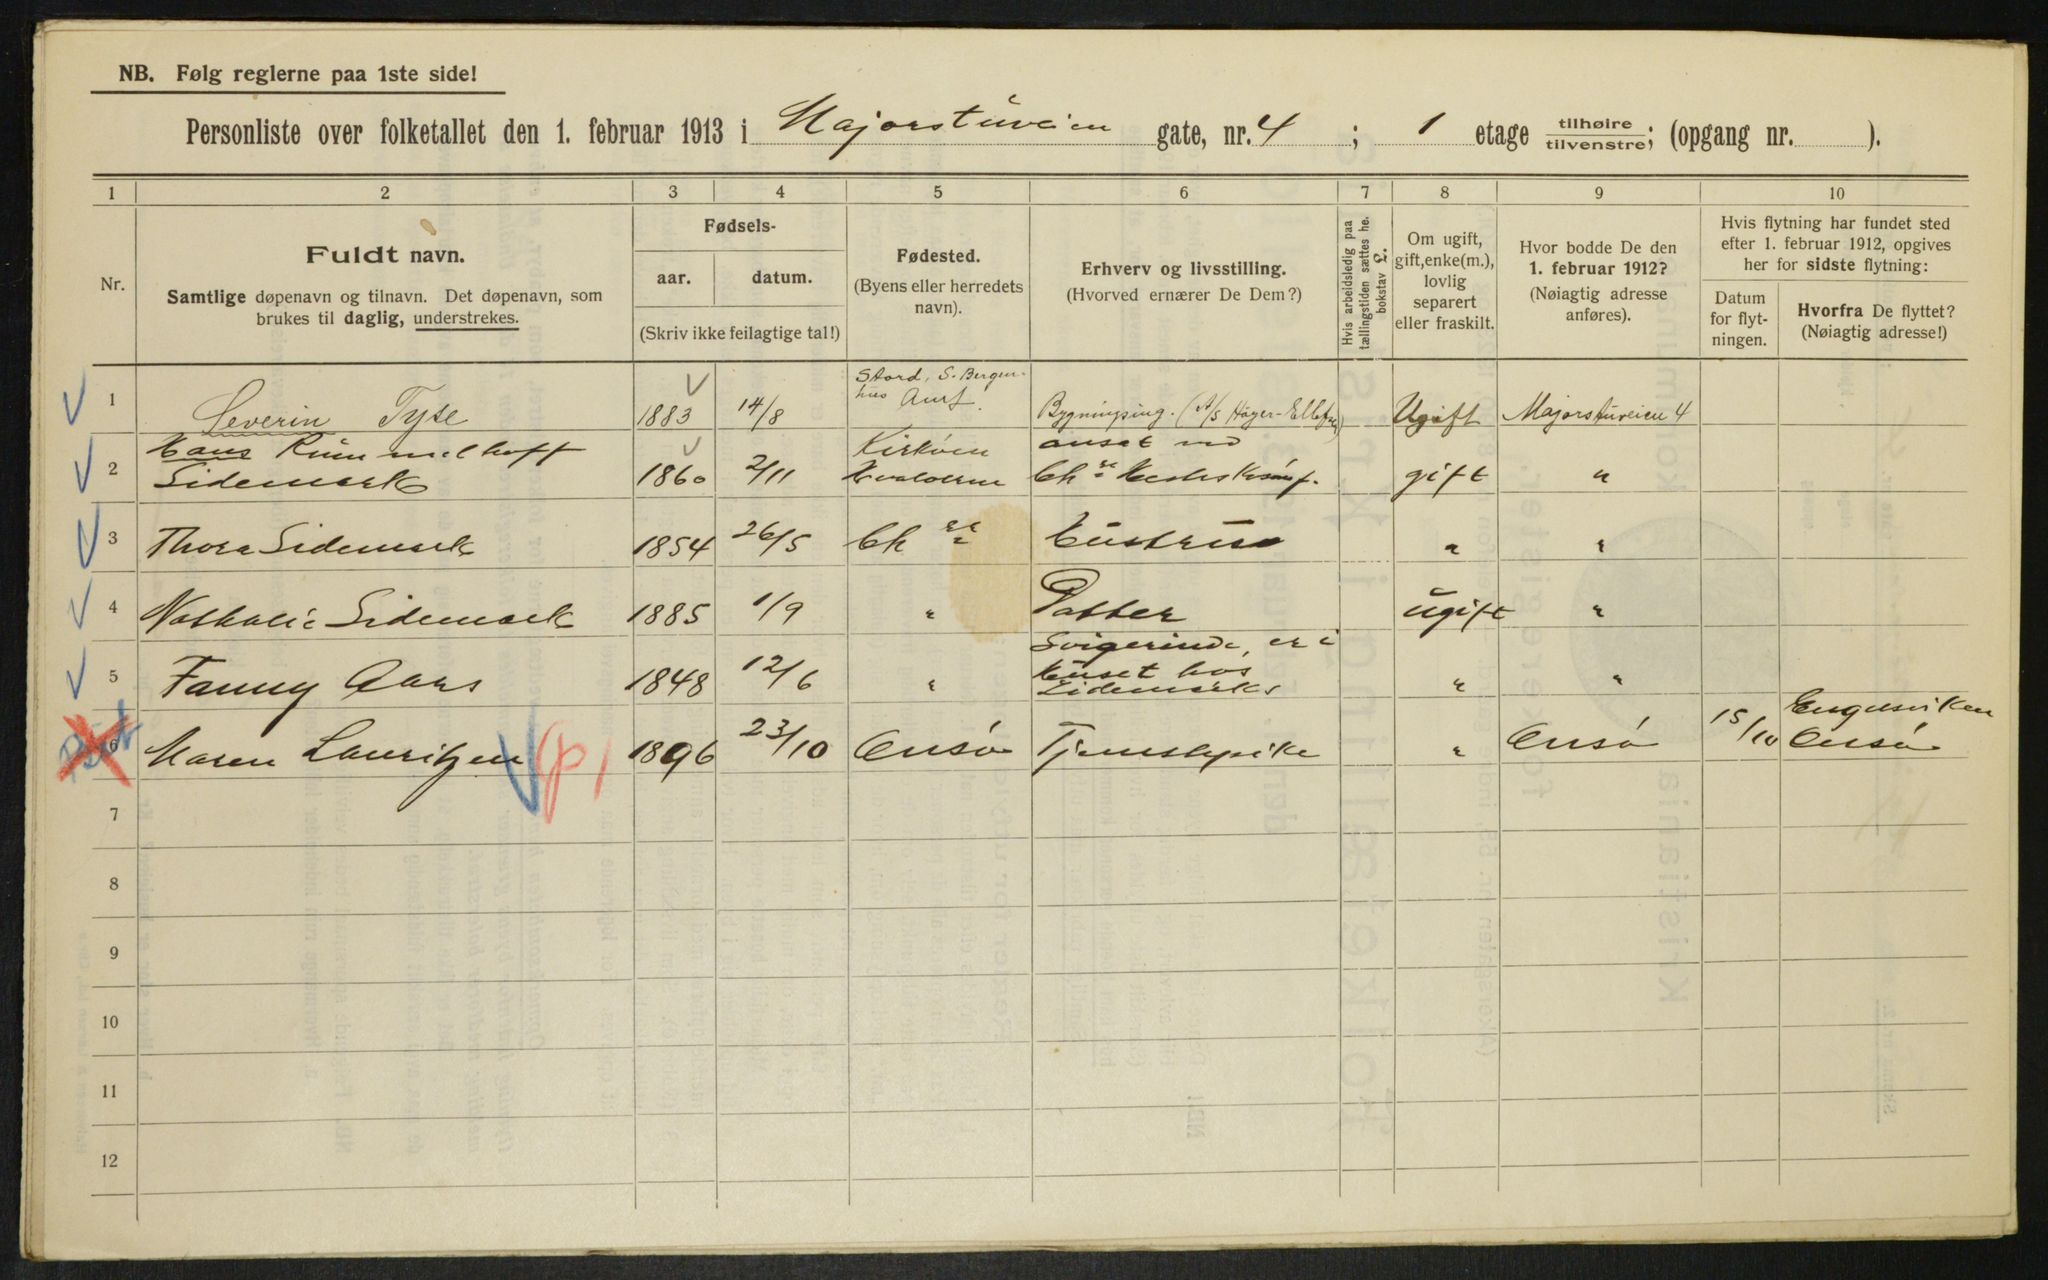 NB. Følg reglerne paa 1ste side!
Personliste over folketallet den 1. februar 1913 i Majorstuveien gate, nr. 4 ; 1 etage tilhøire tilvenstre; (opgang nr. ).
1 2 3 4 5 6 7 8 9 10
Nr.
Fuldt navn.
Samtlige døpenavn og tilnavn. Det døpenavn, som
brukes til daglig, understrekes.
Fødsels-
aar. datum.
(Skriv ikke feilagtige tal!)
Fødested.
(Byens eller herredets
navn).
Erhverv og livsstilling.
(Hvorved ernærer De Dem?)
Hvis arbeidsledig paa
tællingstiden sættes he.
bokstav L.
Om ugift,
gift, enke(m.),
lovlig
separert
eller fraskilt.
Hvor bodde De den
1. februar 1912?
(Nøiagtig adresse
anføres).
Hvis flytning har fundet sted
efter 1. februar 1912, opgives
her for sidste flytning:
Datum
for flyt-
ningen.
Hvorfra De flyttet?
(Nøiagtig adresse!)
1 Severin Tyse 1883 14/8 Stord, S. Bergen-
hus Amt. Bygningsing. (A/S Høyer-Ellefsen) Ugift Majorstuveien 4
2 Hans Rummelhoff
Sidemark 1860 2/11 Kirkøen
Hvaløerne ansat ved
gift "
3 Thora Sidemark 1854 26/5 Ch ra Hustru " "
4 Nathalie Sidemark 1885 1/9 " Datter Ugift "
5 Fanny Aars 1848 12/6 " Svigerinde, er i
huset hos
Sidemarks " "
6 Maren Lauritzen 1896 23/10 Onsø Tjenestepike " Onsø 15/10 Engelsviken
Onsø
7
8
9
10
11
12